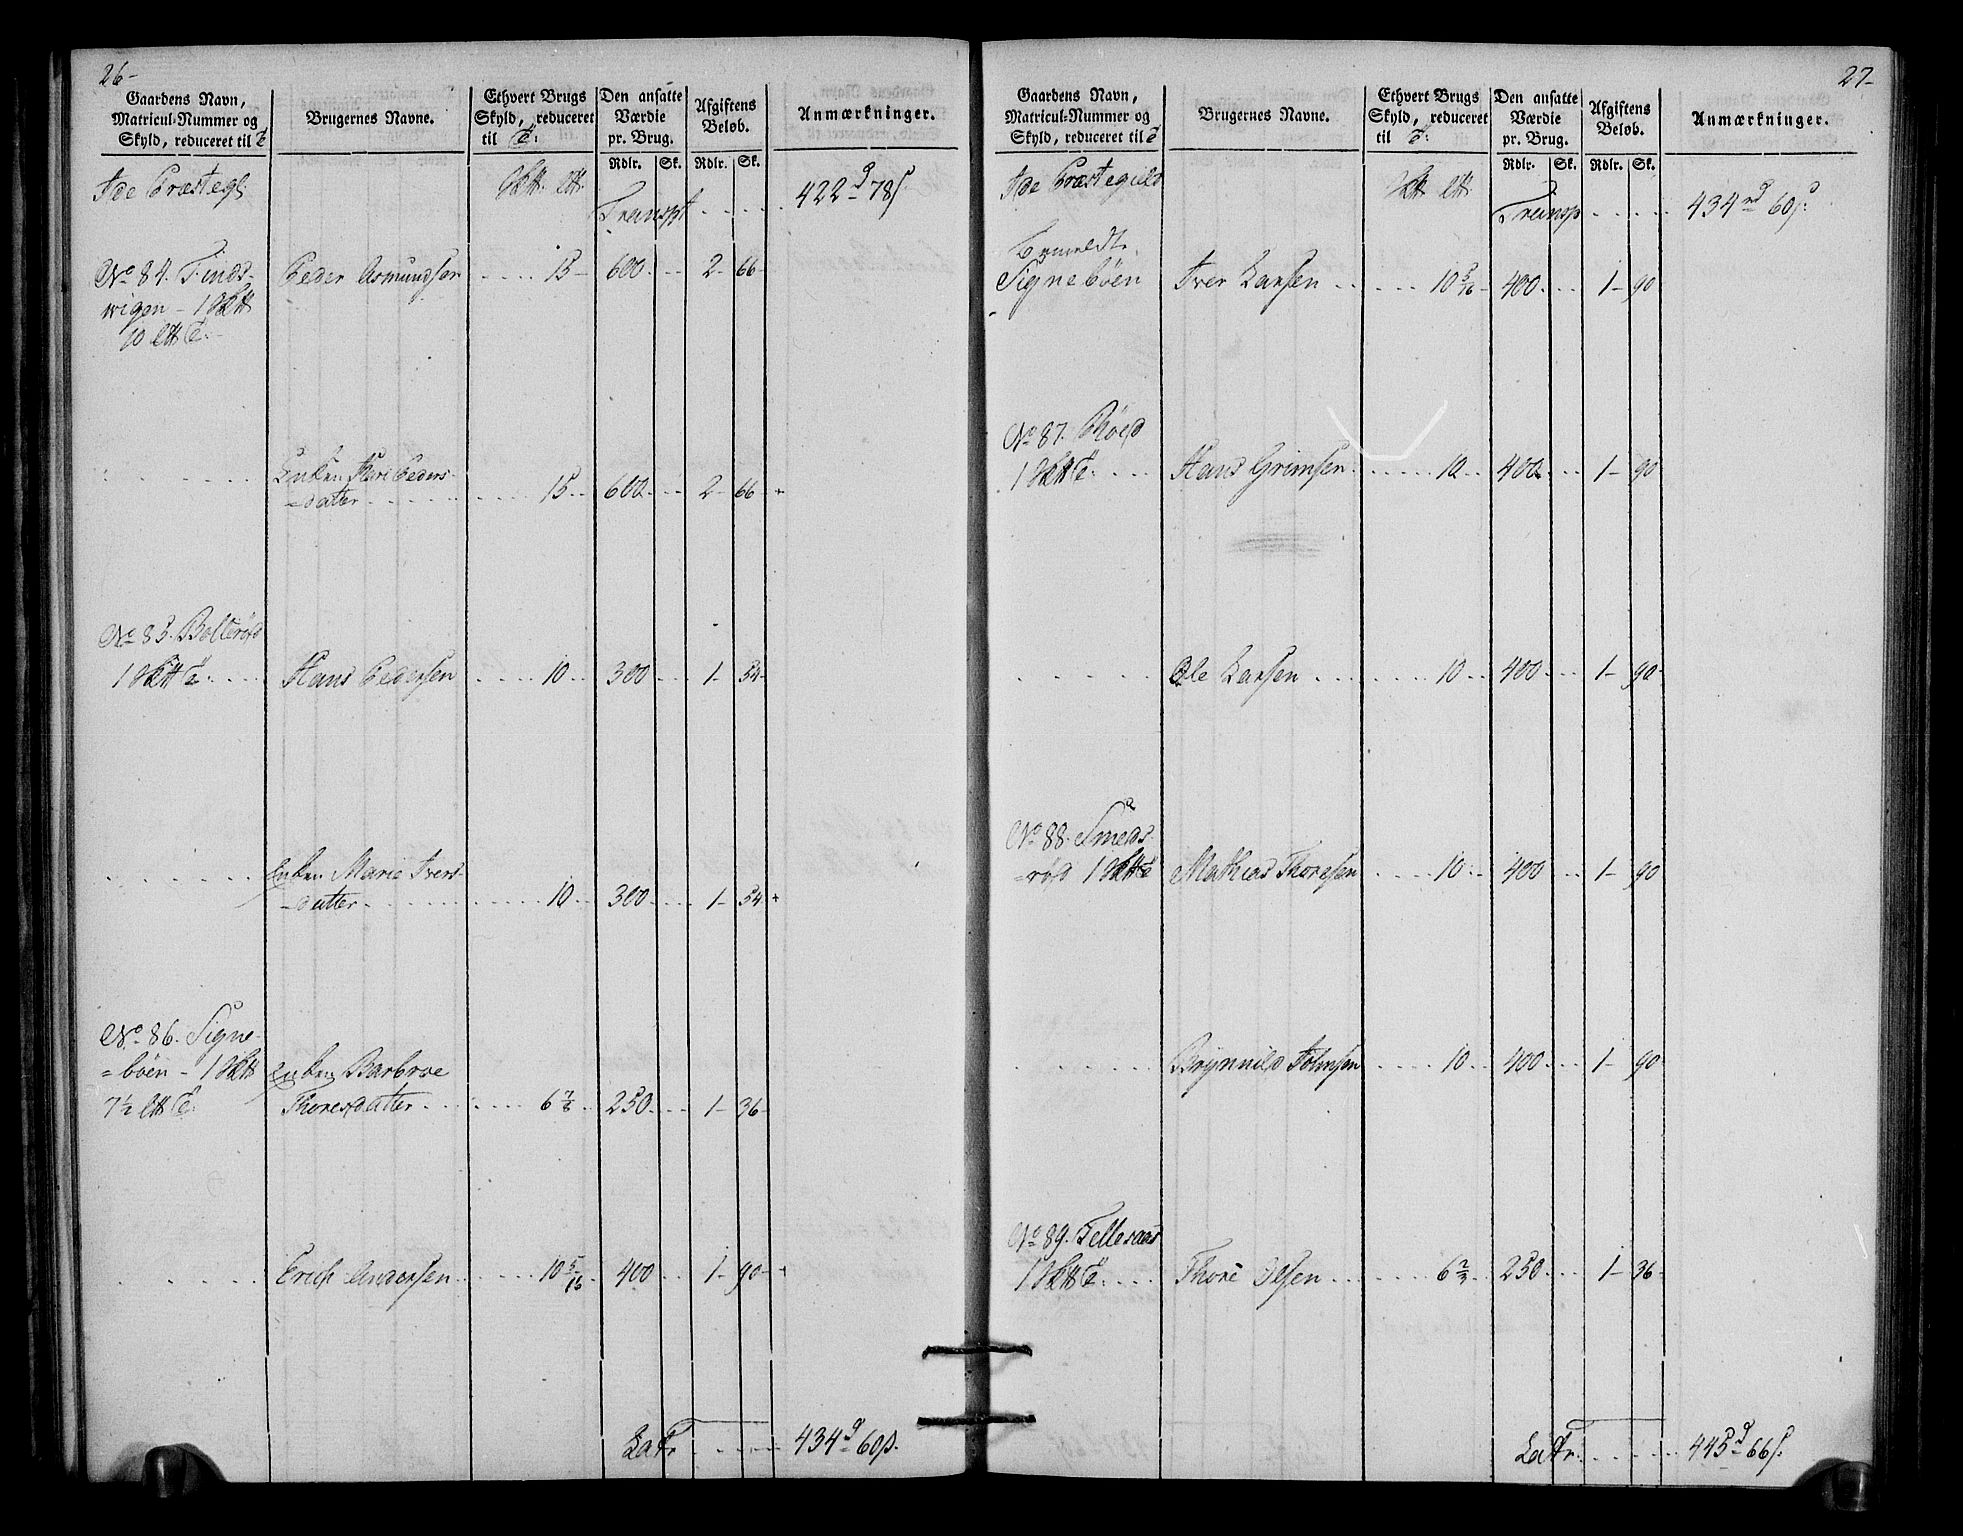 26-
Gaardens Navn,
Matricul-Nummer og
Skyld, reduceret til
Brugernes Navne.
Ethvert Brugs
Skyld, reduceret
til
Den ansatte
Værdie
pr. Brug.
Afgiftens
Beløb.
Anmærkninger.
Rdlr. Sk. Rdlr. Sk.
Ide Præstegl.
Transpt . . . . . 422 - 78
No 84. Finds- Peder Asmundsen . . . . 15 - 600 . . . 2 - 66 -
wigen - 1
10
Enken Kari Peders-
-datter . . . . . . 15 . . 600 . . . 2 - 66 +
No 85. Bolterød
1 . . . Hans Pedersen . . . . 10 . . 300 . . . 1 - 54 -
Enken Marie Ivers-
-datter . . . . . . 10 . . 300 . . . 1 - 54 +
No 86. Signe-
=bøen - 1 Enken Barbroe
7½ Thoresdatter . . . . . . 6 7/8 . . 250 . . . 1 - 36 -
Erich Andersen . . . . 10 5/16 . 400 . . 1 - 90 - +
Latr . . . . . 434 - 60
27-
Gaardens Navn,
Matricul-Nummer og
Skyld, reduceret til
Brugernes Navne.
Ethvert Brugs
Skyld, reduceret
til
Den ansatte
Værdie
pr. Brug.
Afgiftens
Beløb.
Anmærkninger.
Rdlr. Sk. Rdlr. Sk.
Ide Præstegield
Transp . . . . . 434 60
Bemeldte
Signebøen Iver Larsen . . . . . 10 5/16 - 400 . . . 1 - 90
No 87.
1 . . . Hans Grimsen . . . . . 10 . . 400 . . . 1 - 90
Ole Larsen . . . . . . 10 . . 400 . . . 1 - 90 -
No 88. Smeds-
=rød 1 Mathias Thoresen . . . . 10 . . 400 . . . 1 - 90
Brynnild Johnsen . . . . 10 . . 400 . . . 1 - 90
No 89. Tellesaas
1 . . . Thore Olsen . . . . . . 6 2/3 . . 250 . . . 1 - 36 -
Latr . . . . . 445 - 66